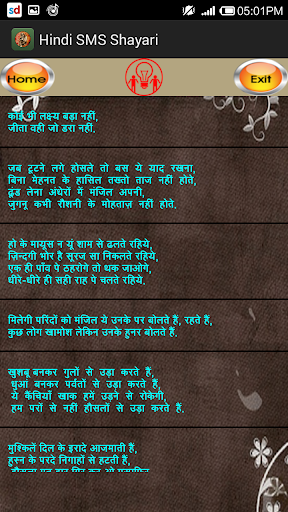 sd
05:01PM
Hindi SMS Shayari
Home
Exit
कोई भी लक्ष्य बड़ा नहीं,
जीता वही जो डरा नहीं.
जब टूटने लगे होसले तो बस ये याद रखना,
बिना मेहनत के हासिल तख्तो ताज नहीं होते,
ढूंड लेना अंधेरों में मंजिल अपनी,
जुगनू कभी रौशनी के मोहताज़ नहीं होते.
हो के मायूस न यूं शाम से ढलते रहिये,
ज़िन्दगी भोर है सूरज सा निकलते रहिये,
एक ही पाँव पे ठहरोगे तो थक जाओगे,
धीरे-धीरे ही सही राह पे चलते रहिये.
मिलेगी परिंदों को मंजिल ये उनके पर बोलते हैं, रहते हैं,
कुछ लोग खामोश लेकिन उनके हुनर बोलते हैं.
खुशबू बनकर गुलों से उड़ा करते हैं,
धुआं बनकर पर्वतों से उड़ा करते हैं,
ये कैंचियाँ खाक हमें उड़ने से रोकेगी,
हम परों से नहीं हौसलों से उड़ा करते हैं.
मुश्किलें दिल के इरादे आजमाती हैं,
हुस्न के परदे निगाहों से हटाती हैं,